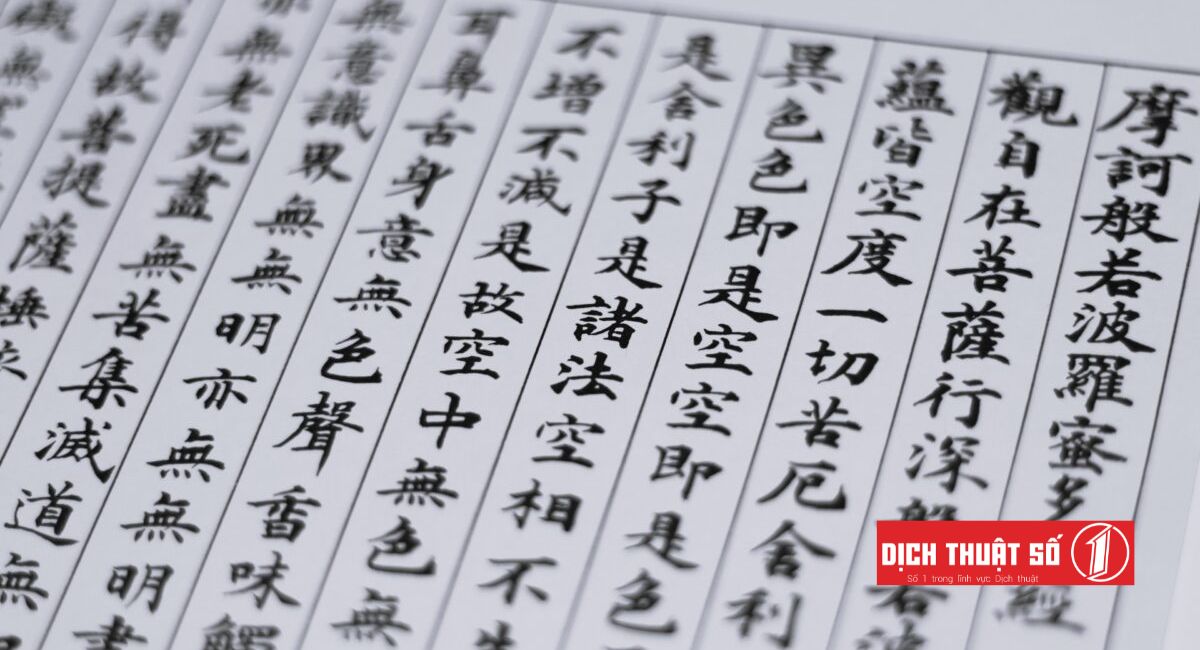 摩訶般若波羅蜜多經
觀自在菩薩行深般若波
蘊皆空度一切苦厄舍利
異色色即是空空即是色
是舍利子是諸法空相不生
不增不減是故空中無色無
耳鼻舌身意無色聲香味觸
無意識界無無明亦無無明盡
亦無老死盡無苦集滅道無
得故菩提薩埵依
礙無罣
DỊCH THUẬT SỐ 1
Số 1 trong lĩnh vực Dịch thuật